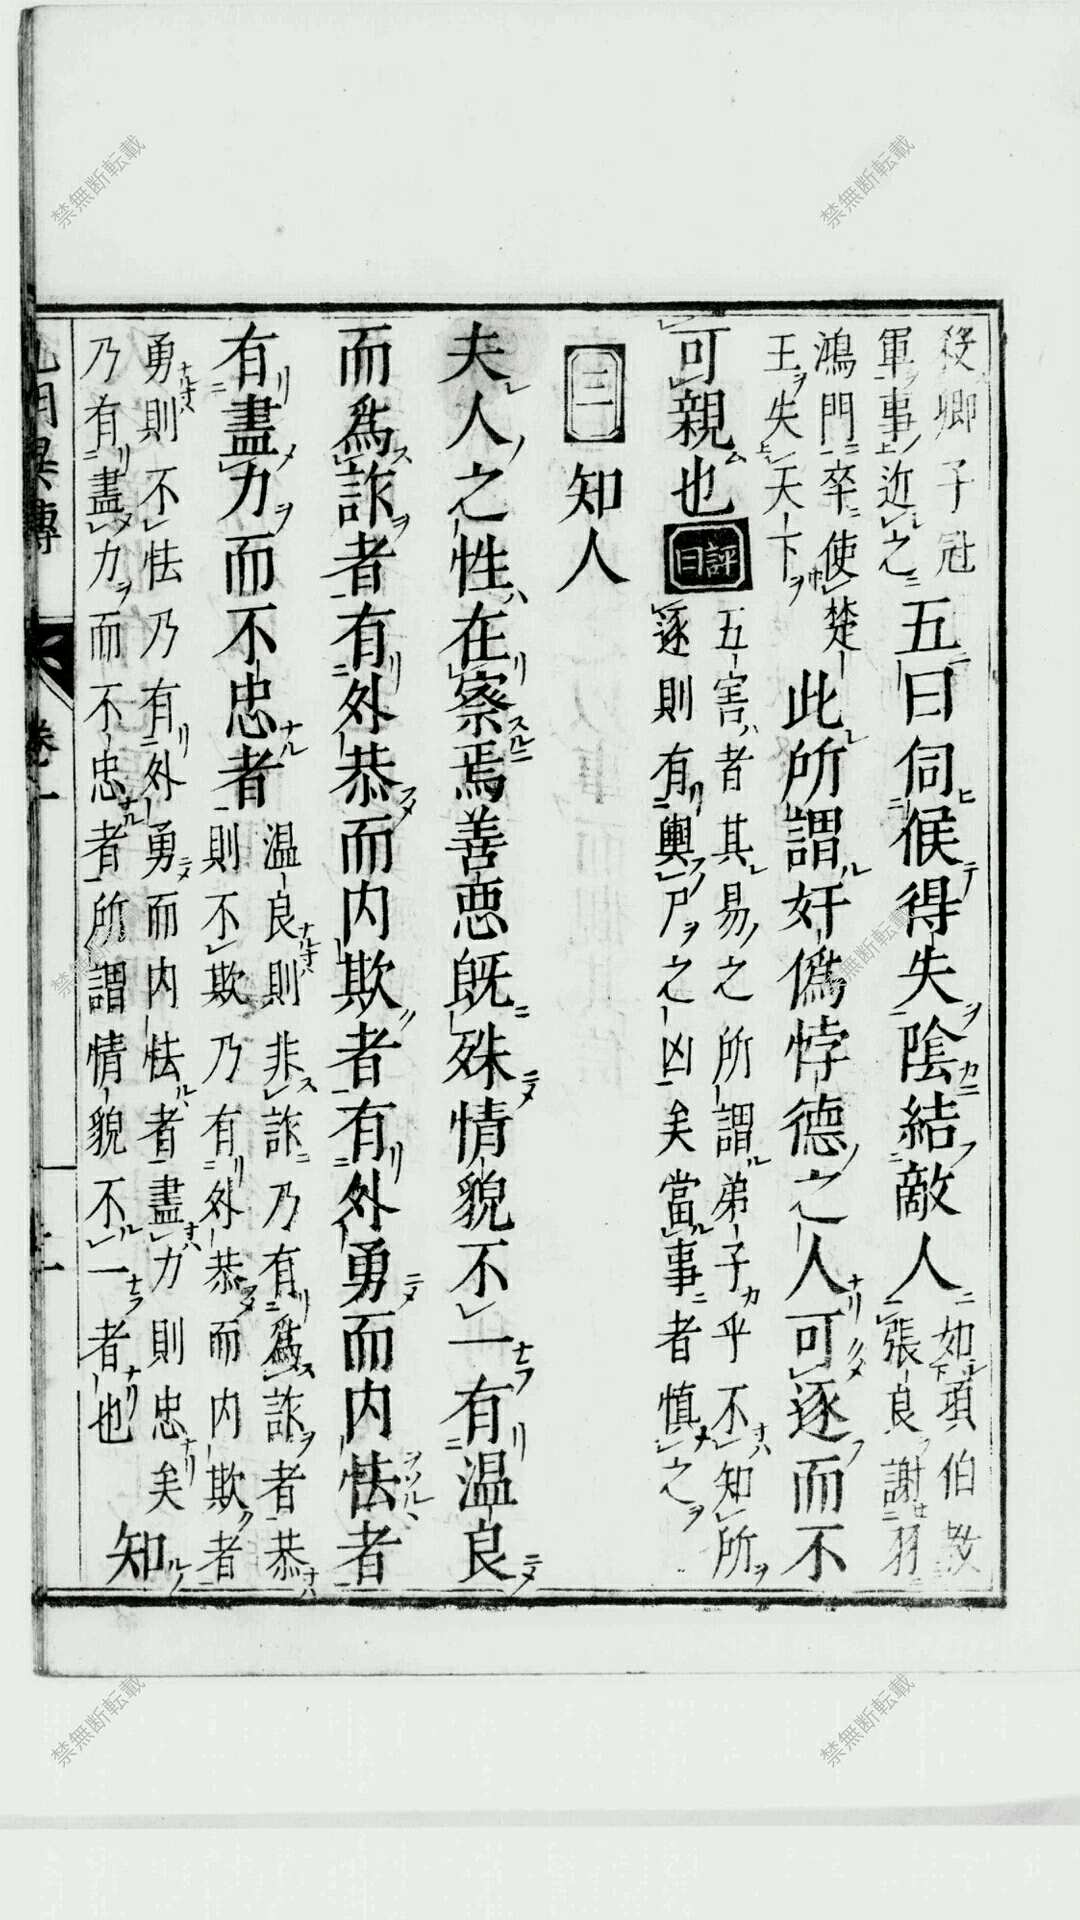 卿子冠
軍事近之
五曰伺候得失陰結敵人
如項伯救
張良謝羽
鴻門卒使楚
王失天下
此所謂奸僞悖德之人可逐而不
可親也
評曰
五害者其易之所謂弟子乎不知所
逐則有輿尸之凶矣當事者慎之
三
知人
夫人之性在察焉善惡既殊情貌不一有温良
而爲詐者有外恭而内欺者有外勇而内怯者
有盡力而不忠者
温良則非詐乃有爲詐者恭
則不欺乃有外恭而内欺者
勇則不怯乃有外勇而内怯者盡力則忠矣
乃有盡力而不忠者所謂情貌不一者也
知
禁無断転載
禁無断転載
禁無断転載
禁無断転載
禁無断転載
禁無断転載